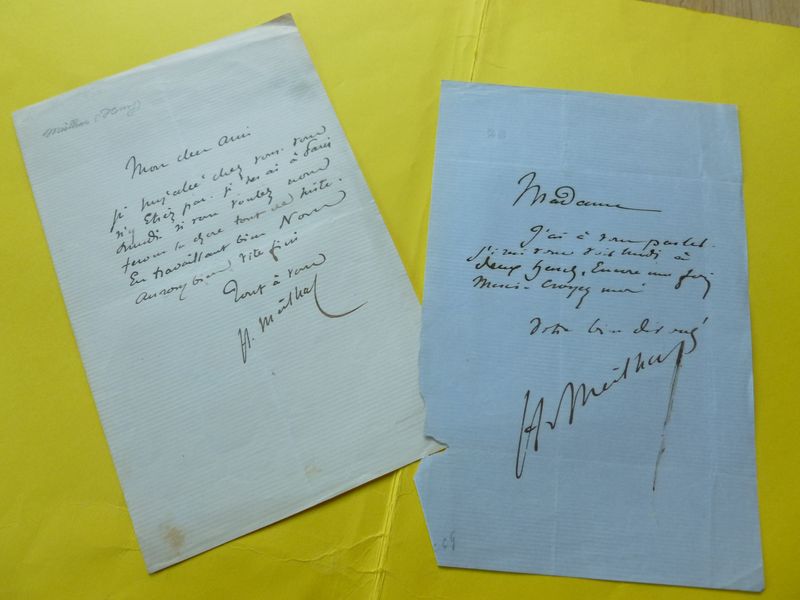 Meilhac (Henry)
Mon cher ami
je suis allé chez vous. vous
n'y étiez pas. je serai à Paris
lundi si vous voulez nous
ferons la chose tout de suite.
En travaillant bien Nous
aurons bien vite fini
Tout à vous
H. Meilhac
Madame
J'ai à vous parler.
J'irai vous voir lundi à
deux heures. Encore une fois
merci - croyez moi
Votre bien dévoué
H. Meilhac